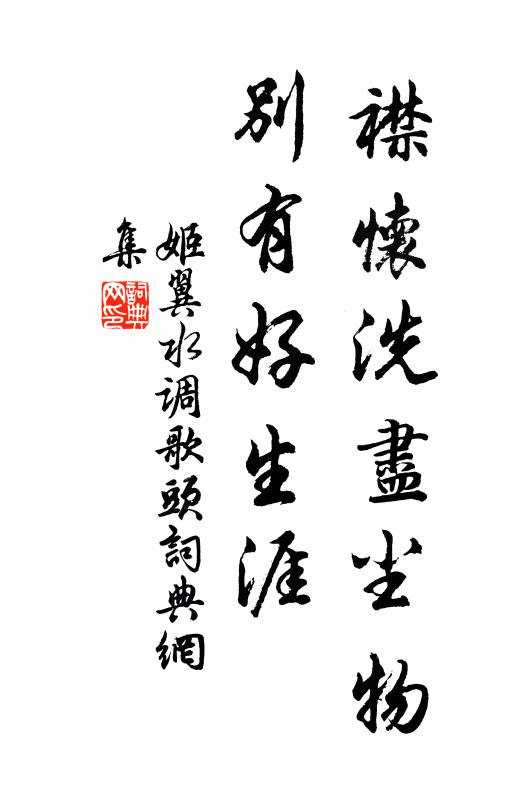 襟懷洗盡尘物
別有好生涯
姬翼水调歌頭詞典網
集
詞典
网印